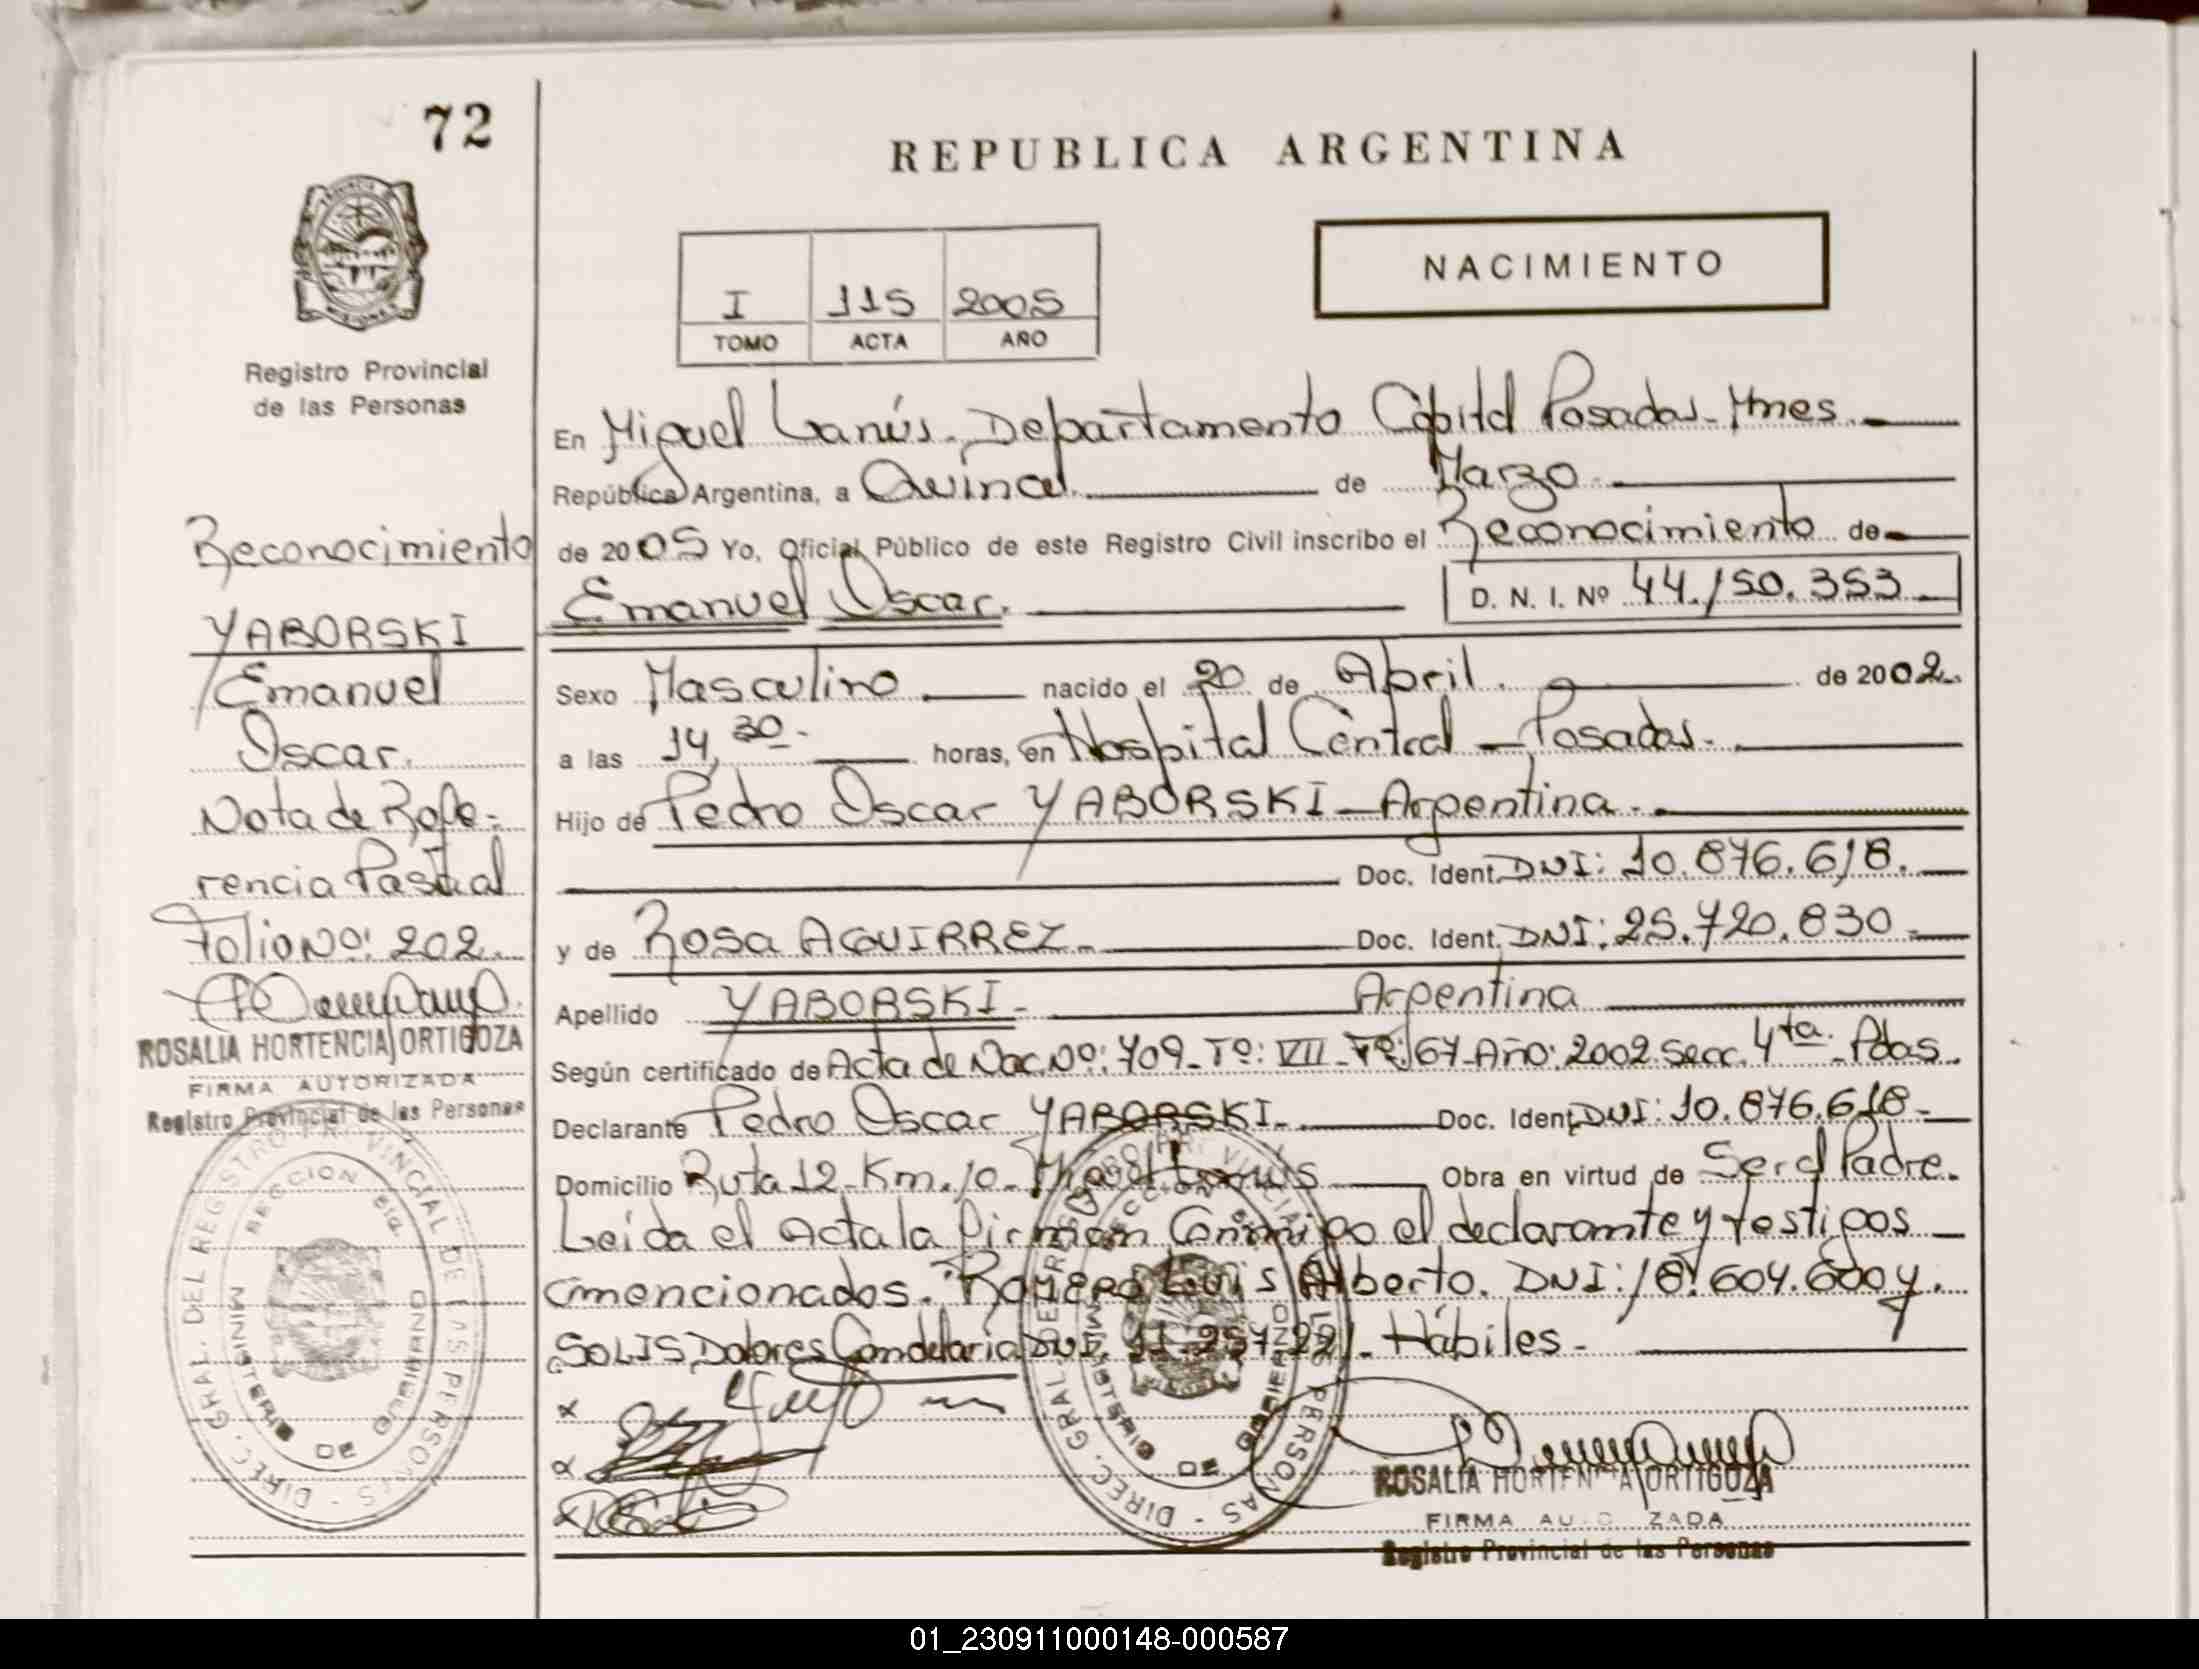 72
REPUBLICA ARGENTINA
NACIMIENTO
I 115 2005
TOMO ACTA AÑO
Registro Provincial
de las Personas
Reconocimiento
YABORSKI
Emanuel
Oscar.
Nota de Refe-
rencia Pasa al
Folio Nº: 202.
ROSALIA HORTENCIA ORTIGOZA
FIRMA AUTORIZADA
Registro Provincial de las Personas
DIREC. GRAL. DEL REGISTRO PROVINCIAL DE LAS PERSONAS
MINISTERIO DE GOBIERNO
En Miguel Lanús. Departamento Capital Posadas - Mnes.
República Argentina, a Quince de Marzo
de 2005 Yo, Oficial Público de este Registro Civil inscribo el Reconocimiento de
Emanuel Oscar. D. N. I. Nº 44.150.353
Sexo Masculino nacido el 20 de Abril. de 2002.
a las 14,30- horas, en Hospital Central - Posadas.
Hijo de Pedro Oscar YABORSKI - Argentina.
Doc. Ident. DNI: 10.876.618.
y de Rosa AGUIRREZ. Doc. Ident. DNI: 25.720.830
Apellido YABORSKI - Argentina
Según certificado de Acta de Nac. Nº: 709 - Tº: VII - Fº: 167 - Año: 2002. Secc. 4ta. Pdas.
Declarante Pedro Oscar YABORSKI. Doc. Ident. DNI: 10.876.618.
Domicilio Ruta 12 - Km. 10 - Miguel Lanús Obra en virtud de Ser el Padre.
Leída el Acta la firman Conmigo el declarante y testigos
mencionados. ROMERO Luis Alberto. DNI: 18.604.600 y.
SOLIS Dolores Candelaria DNI. 11.257.221. Hábiles -
DIREC. GRAL. DEL REGISTRO PROVINCIAL DE LAS PERSONAS
MINISTERIO DE GOBIERNO
ROSALIA HORTENCIA ORTIGOZA
FIRMA AUTORIZADA
Registro Provincial de las Personas
01_230911000148-000587